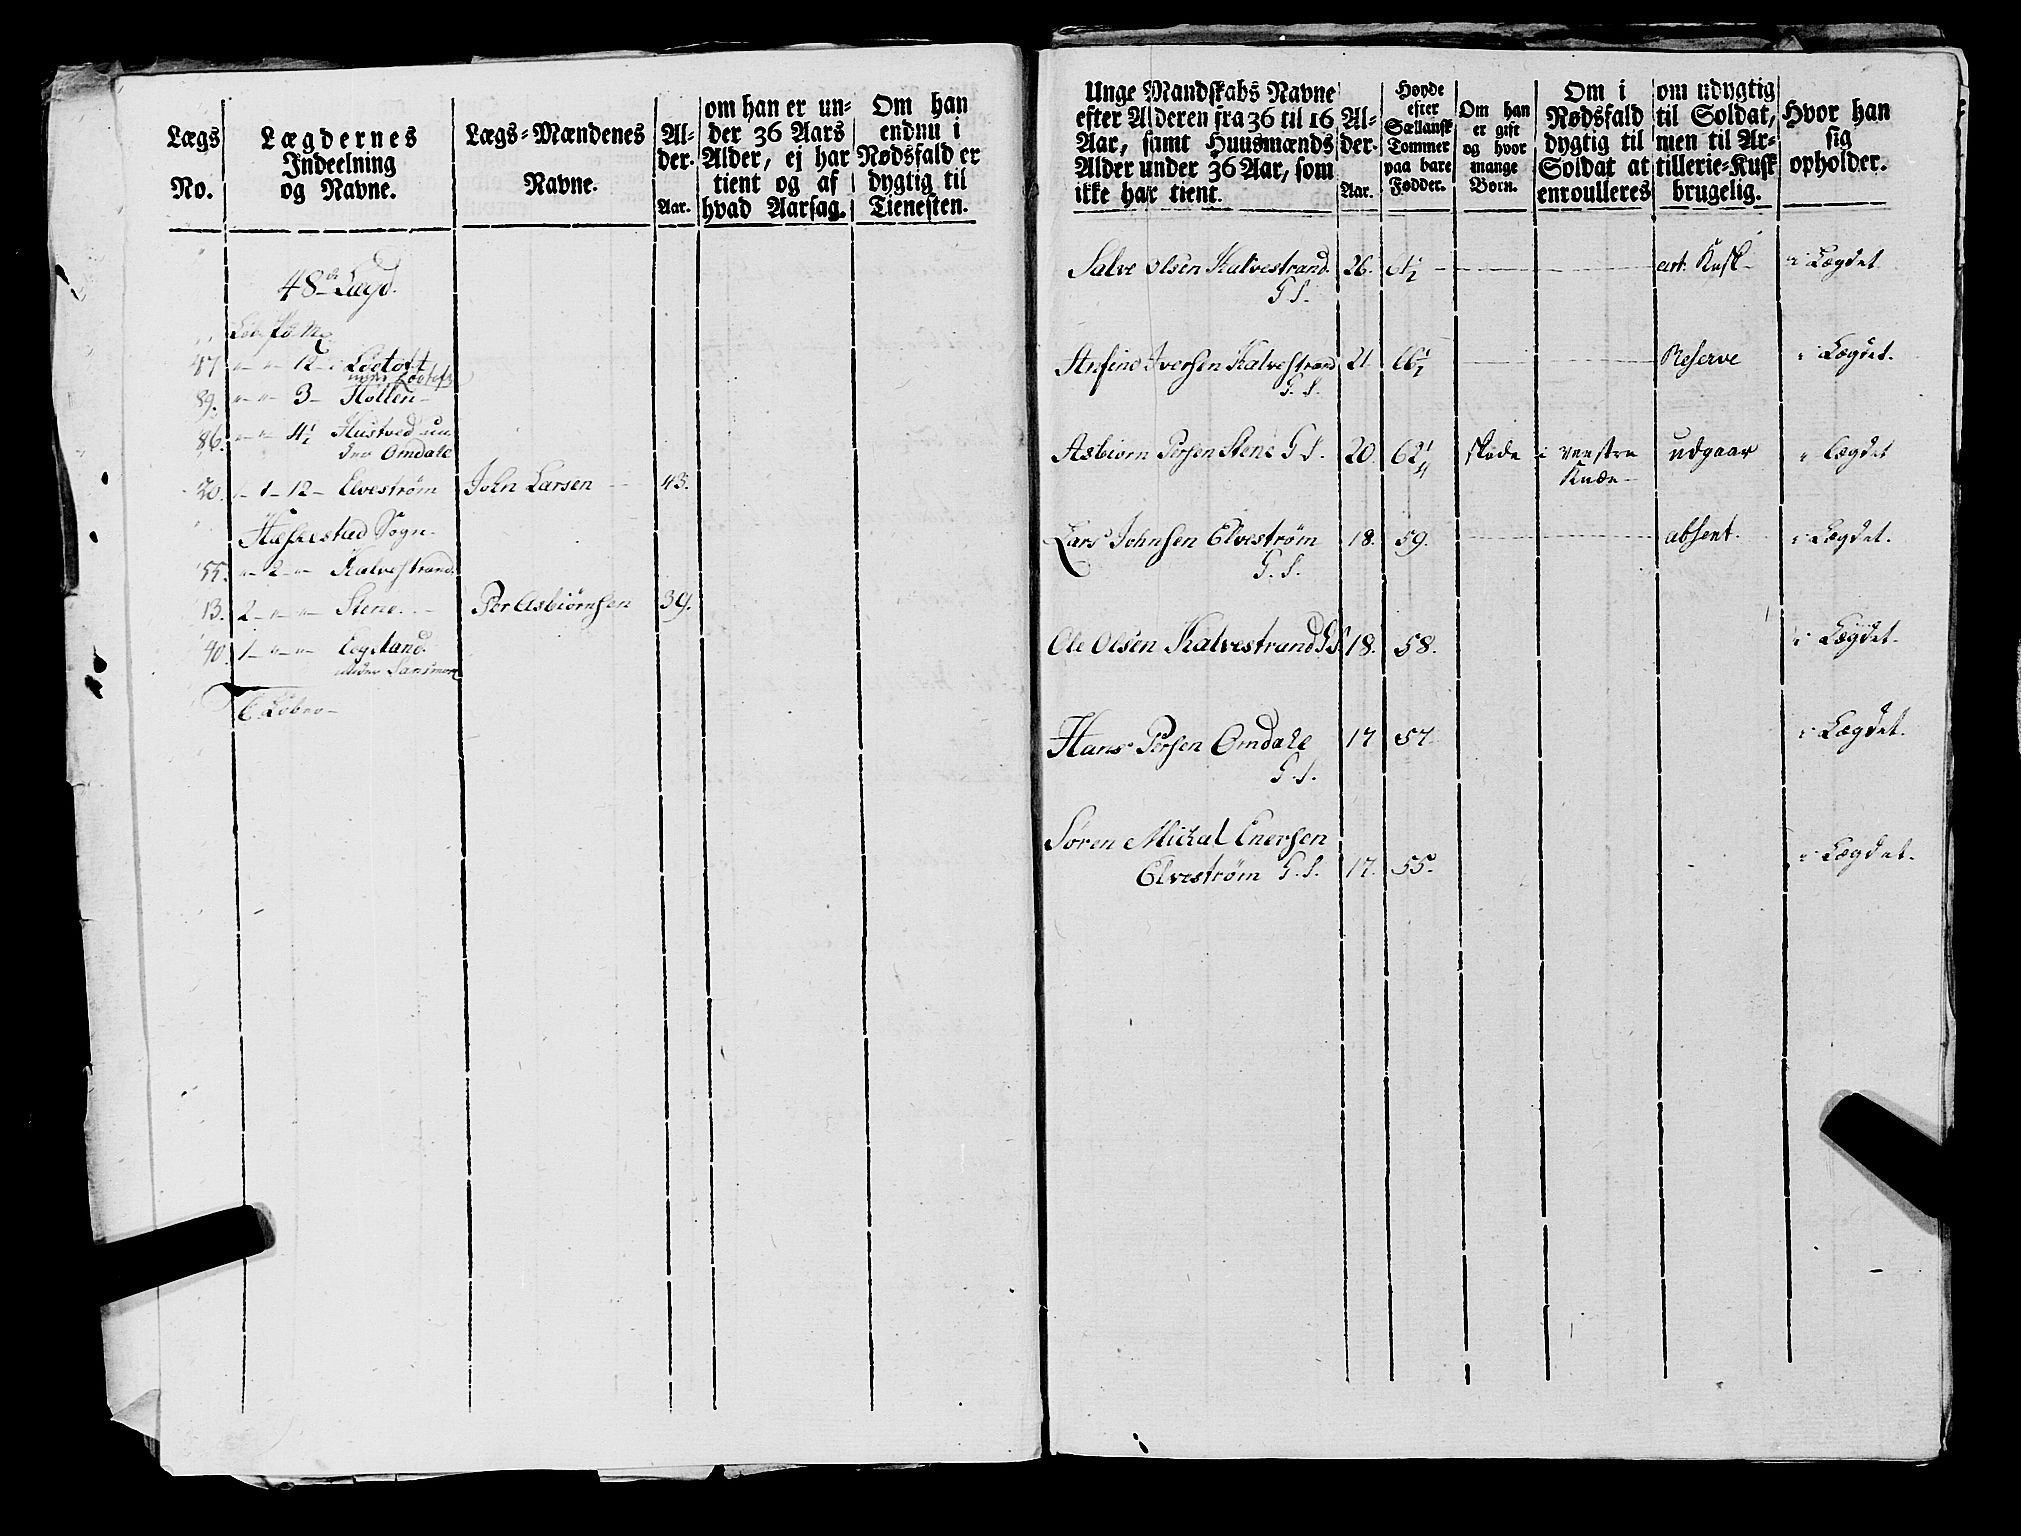 Lægs
No.
Lægdernes
Indeelning
og Navne.
Lægs-Mændenes
Navne.
Al-
der.
Aar.
om han er un-
der 36 Aars
Alder, ej har
tient og af
hvad Aarsag.
Om han
endnu i
Nødsfald er
dygtig til
Tienesten.
48de Lægd.
47 " " 12 Lództoft
89. " " 3 Hollen
86. " " 4½ Hustved un-
der Omdale
20. 1 12 Elvestrøm John Larsen 43.
Sogn.
55. " 2 " Kalvestrand.
13. 2 " " Stene. Per Asbiørnsen 39.
40. 1 " "
under
Unge Mandskabs Navne
efter Alderen fra 36 til 16
Aar, samt Huusmænds
Alder under 36 Aar, som
ikke har tient.
Al-
der.
Aar.
Høyde
efter
Sællansk
Tommer
paa bare
Fødder.
Om han
er gift
og hvor
mange
Børn.
Om i
Nødsfald
dygtig til
Soldat at
enroulleres
om udygtig
til Soldat,
men til Ar-
tillerie-Kusk
brugelig.
Hvor han
sig
opholder.
Salve Olsen Kalvestrand. 26. 61½ art. Kusk i Lægdet
G. S.
Anfind Iversen Kalvestrand 21 66½ Reserve i Lægdet.
G. S.
Asbiørn Persen Stene G S. 20. 62¼ skade i venstre udgaar i Lægdet
Knæe
Lars Johnsen Elvestrøm 18. 59. absent. i Lægdet.
G. S.
Ole Olsen Kalvestrand G. S. 18. 58. i Lægdet.
Hans Persen Omdale 17 57. i Lægdet.
G. S.
Søren Mickal Enersen
Elvestrøm G. S. 17. 55. i Lægdet.